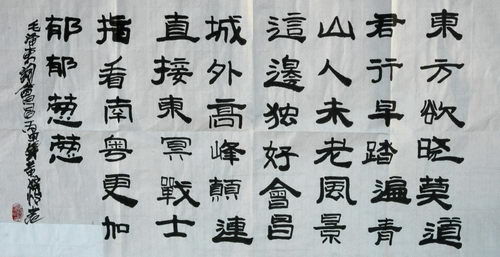 東方欲晓莫道
君行早踏遍青
山人未老風景
這邊独好會昌
城外高峰顛連
直接東冥戰士
指看南粤更加
郁郁葱葱